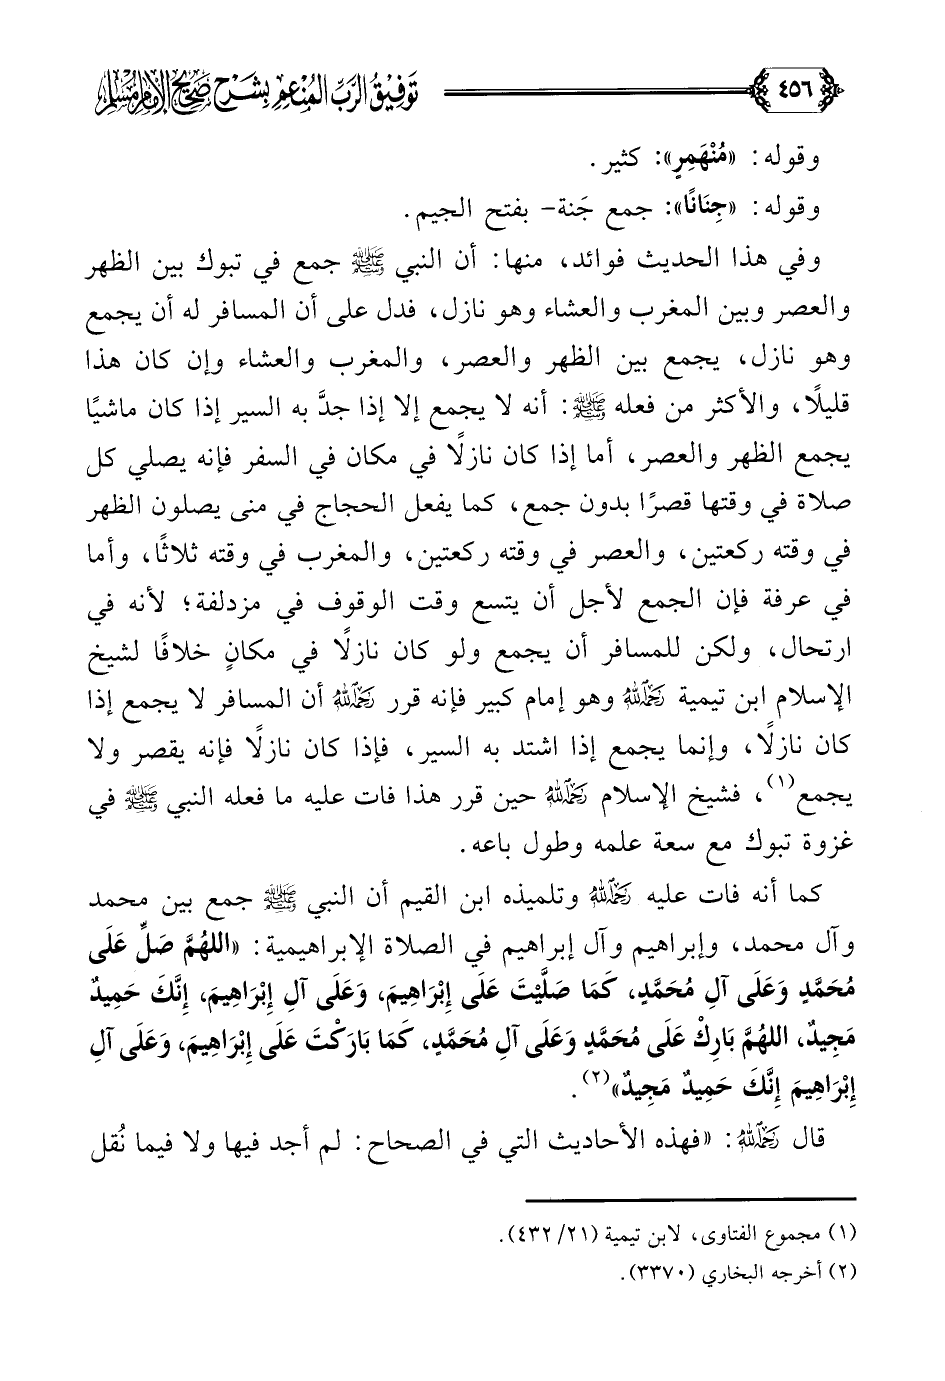 ٤٥٦ توفيق الرب المنعم بشرح صحيح الإمام مسلم
وقوله: «مُنْهَمِرٍ»: كثير.
وقوله: «جِنَانًا»: جمع جَنة- بفتح الجيم.
وفي هذا الحديث فوائد، منها: أن النبي ﷺ جمع في تبوك بين الظهر
والعصر وبين المغرب والعشاء وهو نازل، فدل على أن المسافر له أن يجمع
وهو نازل، يجمع بين الظهر والعصر، والمغرب والعشاء وإن كان هذا
قليلًا، والأكثر من فعله ﷺ: أنه لا يجمع إلا إذا جدَّ به السير إذا كان ماشيًا
يجمع الظهر والعصر، أما إذا كان نازلًا في مكان في السفر فإنه يصلي كل
صلاة في وقتها قصرًا بدون جمع، كما يفعل الحجاج في منى يصلون الظهر
في وقته ركعتين، والعصر في وقته ركعتين، والمغرب في وقته ثلاثًا، وأما
في عرفة فإن الجمع لأجل أن يتسع وقت الوقوف في مزدلفة؛ لأنه في
ارتحال، ولكن للمسافر أن يجمع ولو كان نازلًا في مكانٍ خلافًا لشيخ
الإسلام ابن تيمية رَحِمَهُ اللهُ وهو إمام كبير فإنه قرر رَحِمَهُ اللهُ أن المسافر لا يجمع إذا
كان نازلًا، وإنما يجمع إذا اشتد به السير، فإذا كان نازلًا فإنه يقصر ولا
يجمع(١)، فشيخ الإسلام رَحِمَهُ اللهُ حين قرر هذا فات عليه ما فعله النبي ﷺ في
غزوة تبوك مع سعة علمه وطول باعه.
كما أنه فات عليه رَحِمَهُ اللهُ وتلميذه ابن القيم أن النبي ﷺ جمع بين محمد
وآل محمد، وإبراهيم وآل إبراهيم في الصلاة الإبراهيمية: «اللهُمَّ صَلِّ عَلَى
مُحَمَّدٍ وَعَلَى آلِ مُحَمَّدٍ، كَمَا صَلَّيْتَ عَلَى إِبْرَاهِيمَ، وَعَلَى آلِ إِبْرَاهِيمَ، إِنَّكَ حَمِيدٌ
مَجِيدٌ، اللهُمَّ بَارِكْ عَلَى مُحَمَّدٍ وَعَلَى آلِ مُحَمَّدٍ، كَمَا بَارَكْتَ عَلَى إِبْرَاهِيمَ، وَعَلَى آلِ
إِبْرَاهِيمَ إِنَّكَ حَمِيدٌ مَجِيدٌ»(٢).
قال رَحِمَهُ اللهُ: «فهذه الأحاديث التي في الصحاح: لم أجد فيها ولا فيما نُقل
(١) مجموع الفتاوى، لابن تيمية (٢١/ ٤٣٢).
(٢) أخرجه البخاري (٣٣٧٠).